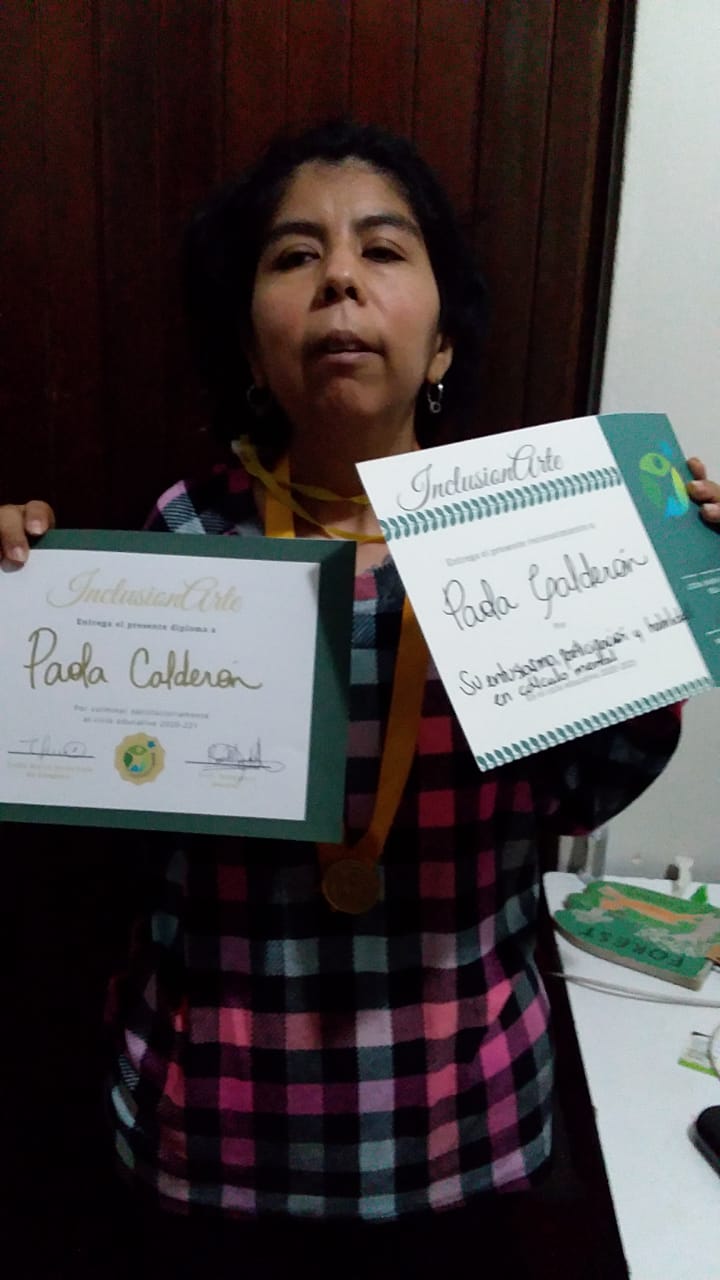 InclusionArte
Entrega el presente diploma a
Paola Calderón
Por culminar satisfactoriamente
el ciclo educativo 2020-221
InclusionArte
Entrega el presente reconocimiento a
Paola Calderón
Por
Su entusiasmo, participación y habilidad
en cálculo mental
FOREST